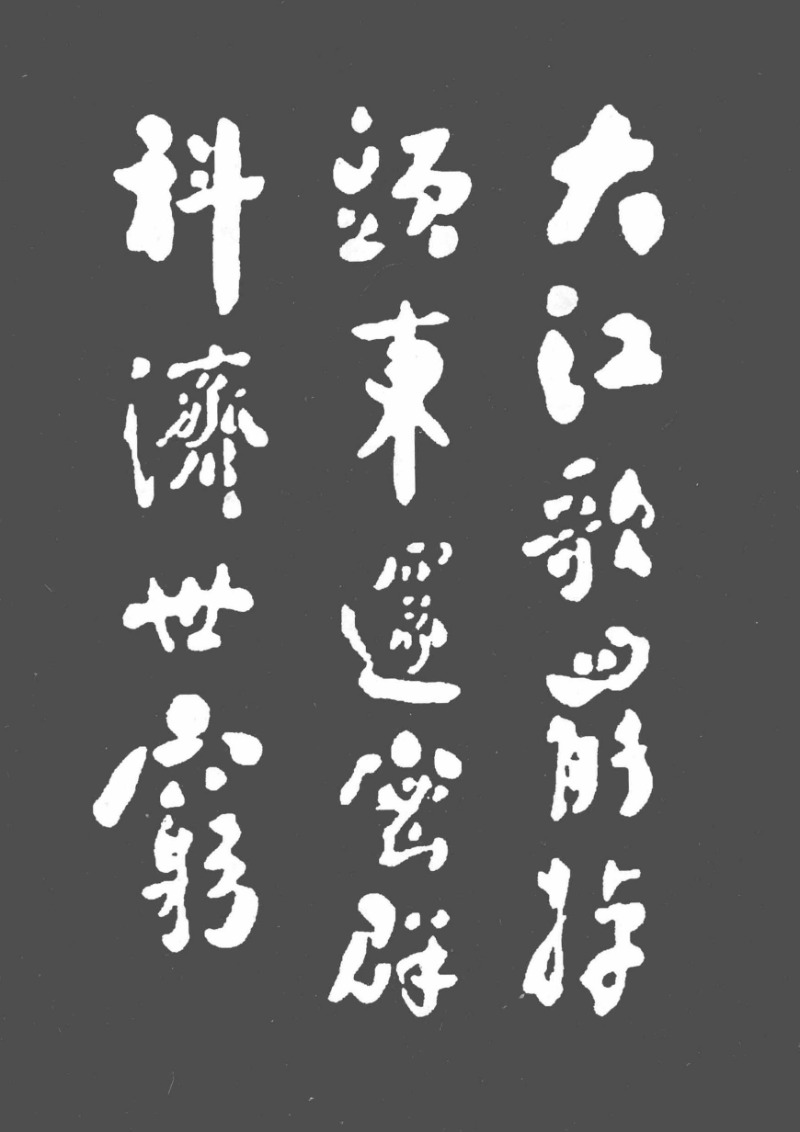 大江歌罷掉
頭東邃密群
科濟世窮